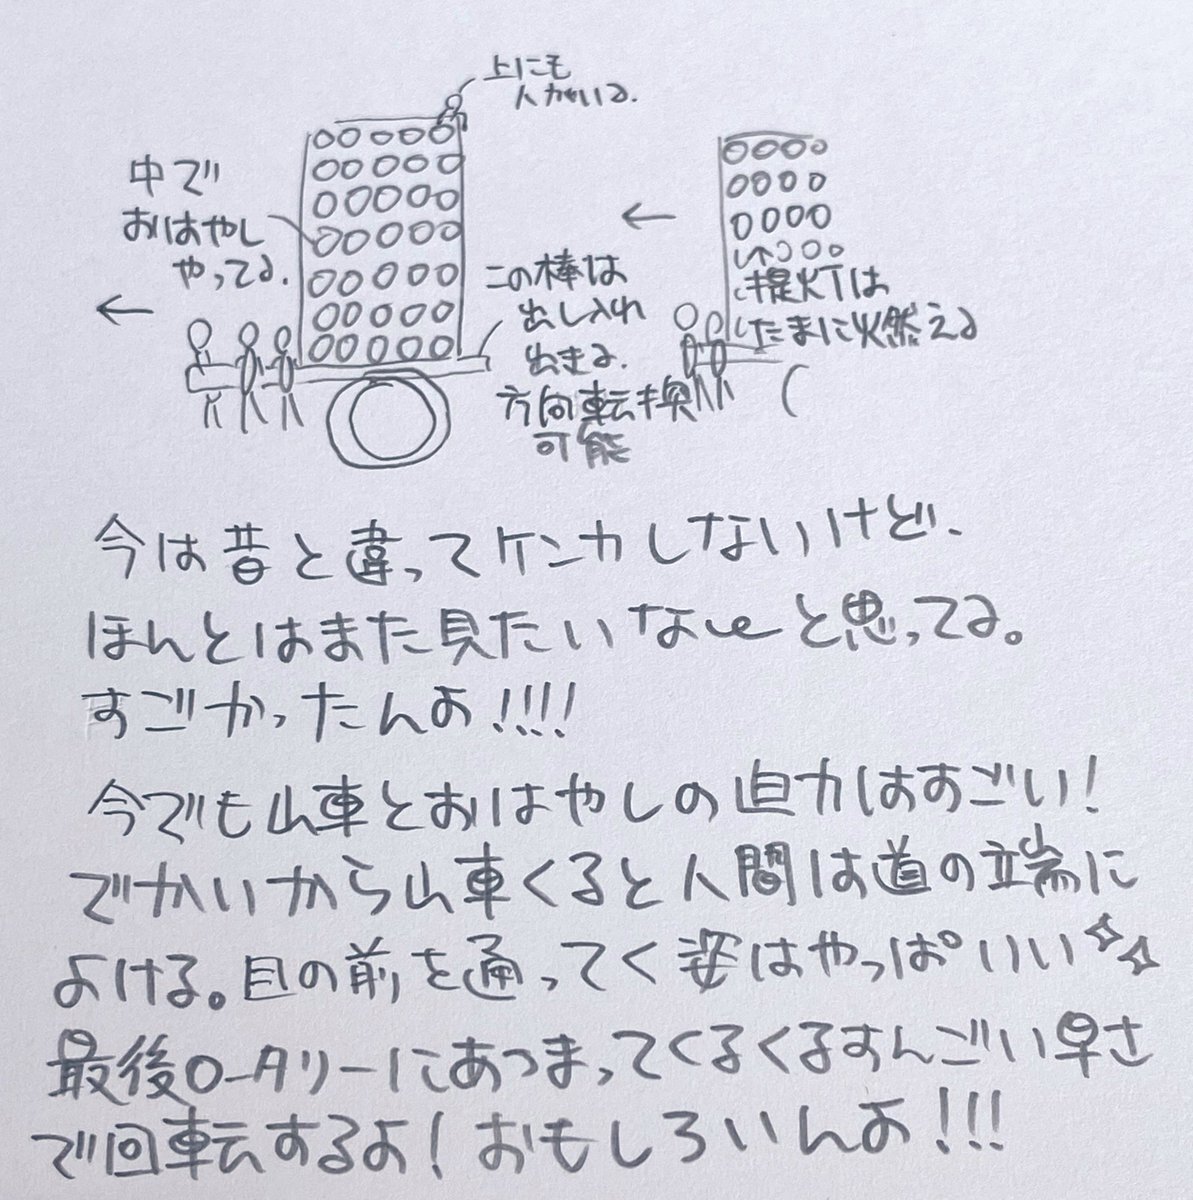 上にも
人がいる.
中で
おはやし
やってる.
この棒は
出し入れ
出きる.
方向転換
可能
提灯は
たまに燃える
今は昔と違ってケンカしないけど、
ほんとはまた見たいなぁと思ってる。
すごかったんよ!!!!
今でも山車とおはやしの迫力はすごい!
でかいから山車くると人間は道の端に
よける。目の前を通ってく姿はやっぱいい
最後ロータリーにあつまってくるくるすんごい早さ
で回転するよ!おもしろいんよ!!!